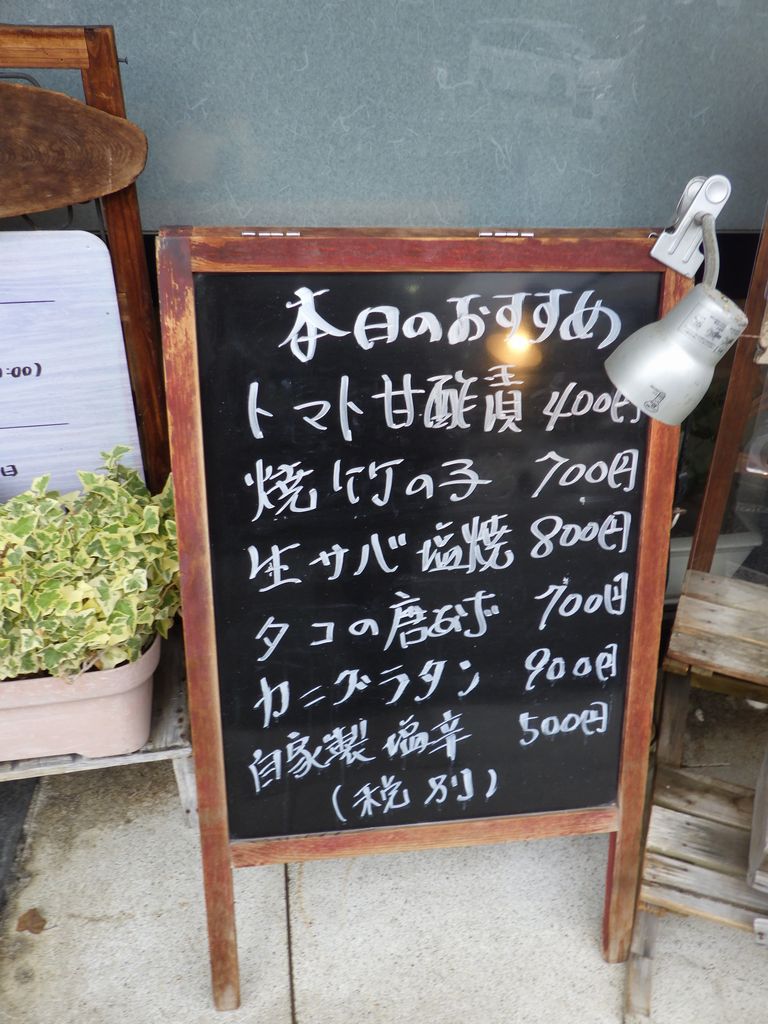 本日のおすすめ
トマト甘酢漬 400円
焼竹の子 700円
生サバ塩焼 800円
タコの唐あげ 700円
カニグラタン 900円
自家製塩辛 500円
(税別)
:00)
日